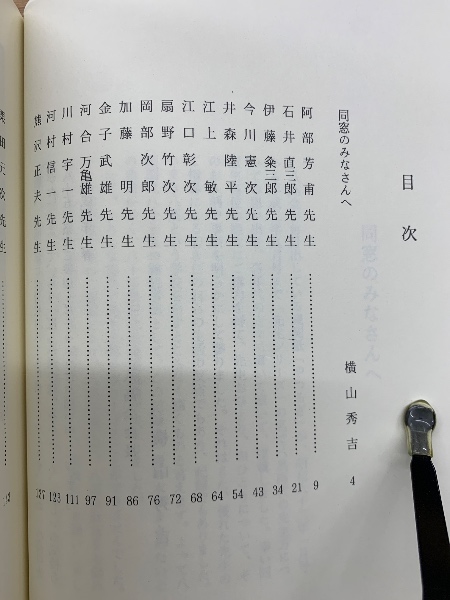 目次
同窓のみなさんへ 横山秀吉 4
阿部芳甫先生 9
石井直三郎先生 21
伊藤粂三郎先生 34
今川憲次先生 43
井森陸平先生 54
江上敏先生 64
江口彰次先生 68
扇野竹次先生 72
岡部次郎先生 76
加藤明先生 86
金子武雄先生 91
河合万亀雄先生 97
川村宇一先生 111
河村信一先生 123
熊沢正夫先生 127